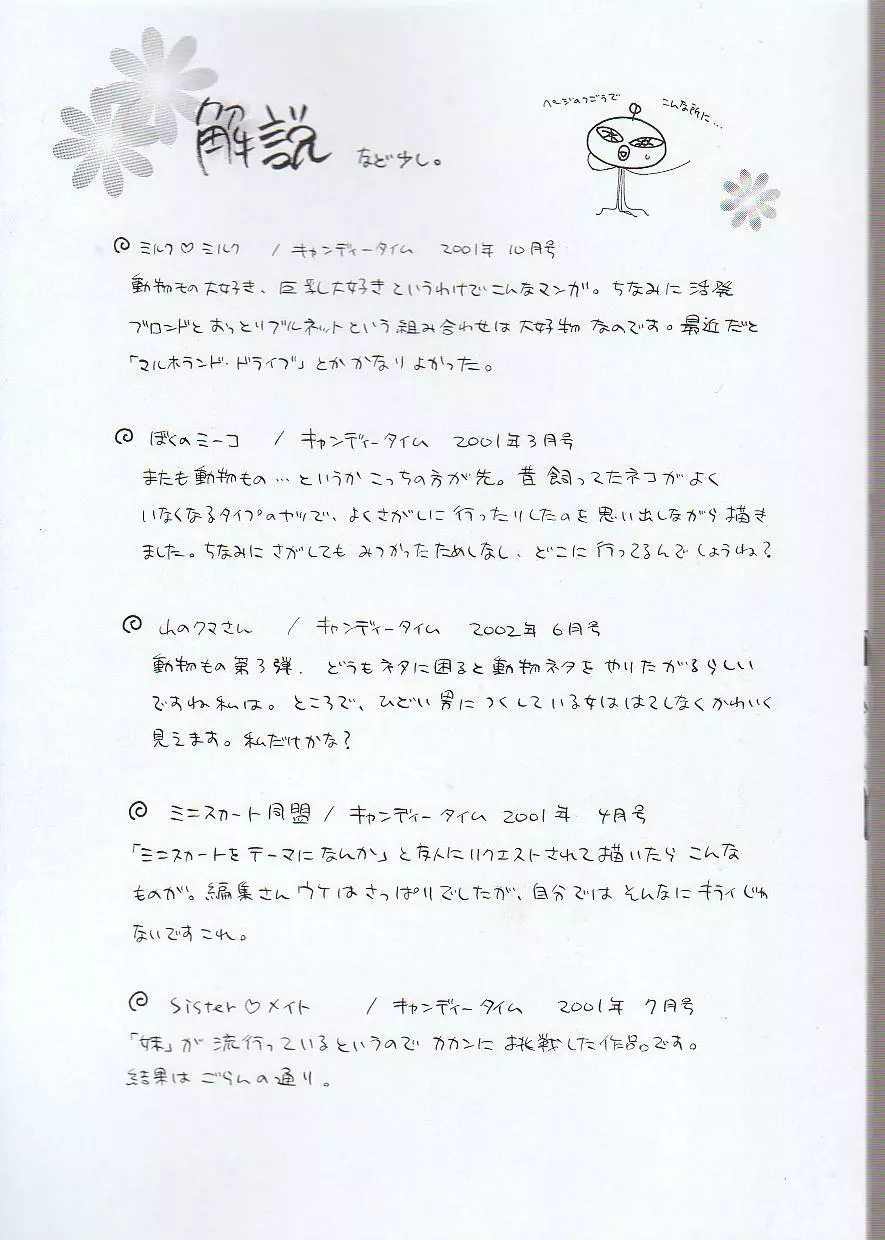 解説 など少し。
ページのつごうで
こんな所に…
ミルク♡ミルク / キャンディータイム 2001年 10月号
動物もの大好き、巨乳大好きというわけでこんなマンガ。ちなみに活発
ブロンドとおっとりブルネットという組み合わせは大好物なのです。最近だと
「マルホランド・ドライブ」とかかなりよかった。
ぼくのミーコ / キャンディータイム 2001年3月号
またも動物もの…というかこっちの方が先。昔飼ってたネコがよく
いなくなるタイプのヤツで、よくさがしに行ったりしたのを思い出しながら描き
ました。ちなみにさがしてもみつかったためしなし、どこに行ってるんでしょうね?
山のクマさん / キャンディータイム 2002年6月号
動物もの第3弾. どうもネタに困ると動物ネタをやりたがるらしい
ですね私は。ところで、ひどい男につくしている女ははてしなくかわいく
見えます。私だけかな?
ミニスカート同盟 / キャンディータイム 2001年 4月号
「ミニスカートをテーマになんか」と友人にリクエストされて描いたらこんな
ものが。編集さんウケはさっぱりでしたが、自分ではそんなにキライじゃ
ないですこれ。
Sister♡メイト / キャンディータイム 2001年 7月号
「妹」が流行っているというのでカカンにお挑戦した作品。です。
結果はごらんの通り。